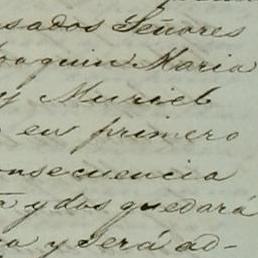 sados Señores
Joaquin Maria
y Muriel
en primero
onsecuencia
a y dos quedará
a y será ad-